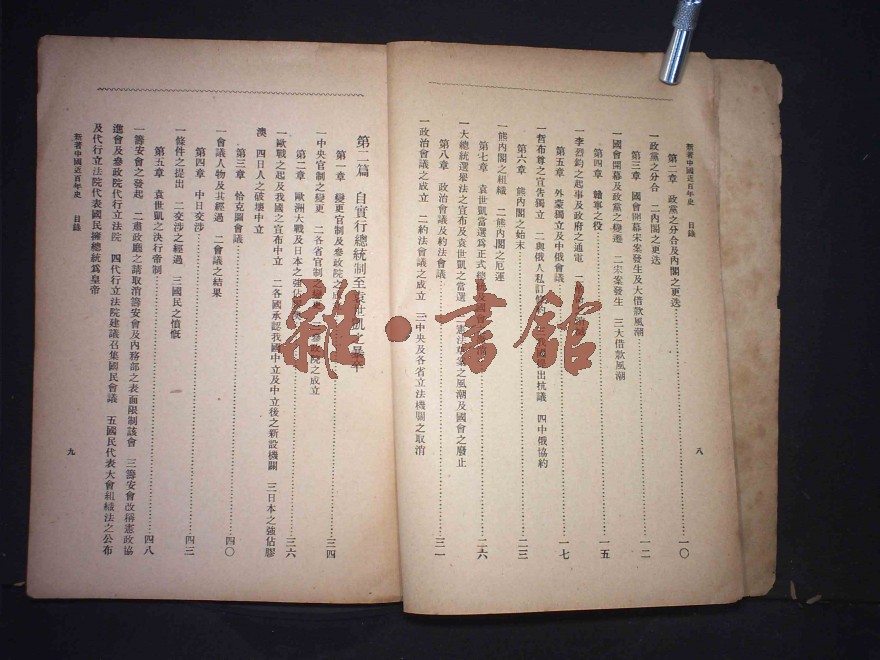 新著中國近百年史 目錄
第二章 政黨之分合及內閣之更迭…一〇
一政黨之分合 二內閣之更迭
第三章 國會開幕宋案發生及大借款風潮…一二
一國會開幕及政黨之變遷 二宋案發生 三大借款風潮
第四章 贛軍之役…一五
一李烈鈞之起事及政府之通電
第五章 外蒙獨立及中俄會議…一七
一哲布尊之宣告獨立 二與俄人私訂 出抗議 四中俄協約
第六章 熊內閣之始末…二三
一熊內閣之組織 二熊內閣之厄運
第七章 袁世凱當選爲正式總 及國會…二六
一大總統選舉法之宣布及袁世凱之當選 之風潮及國會之廢止
第八章 政治會議及約法會議…三一
一政治會議之成立 二約法會議之成立 三中央及各省立法機關之取消
八
第二篇 自實行總統制至袁世凱之暴卒
第一章 變更官制及參政院之成…三四
一中央官制之變更 二各省官制之變 參政院之成立
第二章 歐洲大戰及日本之強佔膠…三六
一歐戰之起及我國之宣布中立 二各國承認我國中立及中立後之新設機關 三日本之強佔膠
澳 四日人之破壞中立
第三章 恰克圖會議…四〇
一會議人物及其經過 二會議之結果
第四章 中日交涉…四三
一條件之提出 二交涉之經過 三國民之憤慨
第五章 袁世凱之決行帝制…四八
一籌安會之發起 二肅政廳之請取消籌安會及內務部之表面限制該會 三籌安會改稱憲政協
進會及參政院代行立法院 四代行立法院建議召集國民會議 五國民代表大會組織法之公布
及代行立法院代表國民擁總統爲皇帝
新著中國近百年史 目錄
九
雜·書館